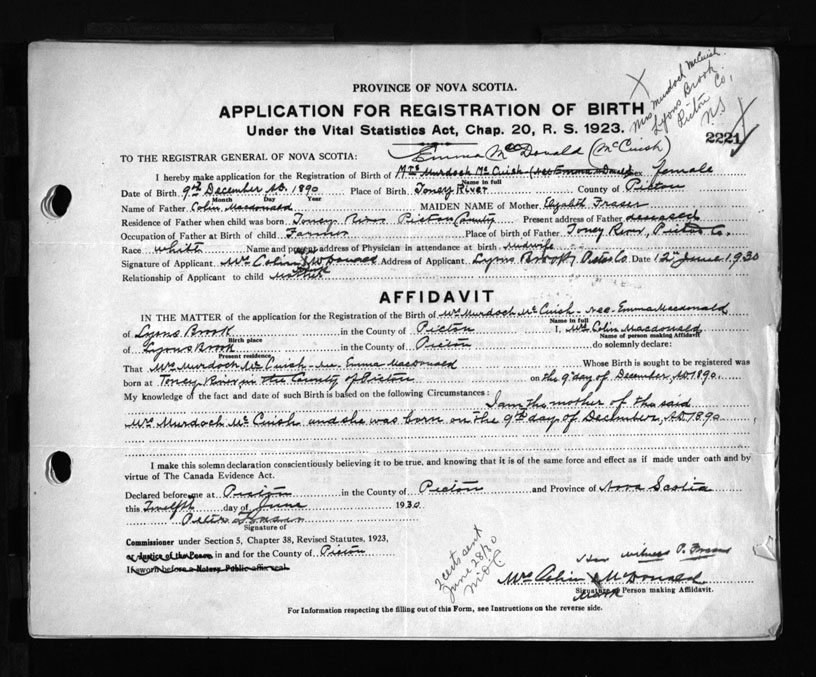 PROVINCE OF NOVA SCOTIA.
APPLICATION FOR REGISTRATION OF BIRTH
Under the Vital Statistics Act, Chap. 20, R. S. 1923.
Mrs Murdoch McCuish.
Lyons Brook
Pictou Co,
NS
2221
TO THE REGISTRAR GENERAL OF NOVA SCOTIA:
Emma McDonald (McCuish)
I hereby make application for the Registration of Birth of Mrs Murdoch Mc Cuish (nee Emma Donald Sex female
Name in full
Date of Birth 9th December A.D. 1890 Place of Birth Toney River County of Pictou
Month Day Year
Name of Father Colin Macdonald MAIDEN NAME of Mother Elizabeth Fraser
Residence of Father when child was born Toney River Pictou County Present address of Father deceased
Occupation of Father at Birth of child Farmer Place of birth of Father Toney River, Pictou Co.
Race white Name and present address of Physician in attendance at birth Midwife
Signature of Applicant Mrs Colin X McDonald Address of Applicant Lyons Brook, Pictou Co. Date 12th June 1930
Mark
Relationship of Applicant to child Mother
AFFIDAVIT
IN THE MATTER of the application for the Registration of the Birth of Mrs Murdoch Mc Cuish nee Emma Macdonald
Name in full
of Lyons Brook in the County of Pictou I, Mrs Colin Macdonald
Birth place Name of person making Affidavit
of Lyons Brook in the County of Pictou do solemnly declare:
Present residence
That Mrs Murdoch Mc Cuish nee Emma Macdonald Whose Birth is sought to be registered was
born at Toney River in the County of Pictou on the 9th day of December A.D. 1890.
My knowledge of the fact and date of such Birth is based on the following Circumstances:
I am the mother of the said
Mrs Murdoch Mc Cuish and she was born on the 9th day of December, A.D. 1890
I make this solemn declaration conscientiously believing it to be true, and knowing that it is of the same force and effect as if made under oath and by
virtue of The Canada Evidence Act.
Declared before me at Pictou in the County of Pictou and Province of Nova Scotia
this Twelfth day of June 1930
Peter Fraser
Signature of
Commissioner under Section 5, Chapter 38, Revised Statutes, 1923,
or Justice of the Peace in and for the County of Pictou
If sworn before a Notary Public affix seal
2 certs sent
June 28/30
Her witness P. Fraser
Mrs Colin X McDonald
Mark
Signature of Person making Affidavit.
For Information respecting the filling out of this Form, see Instructions on the reverse side.